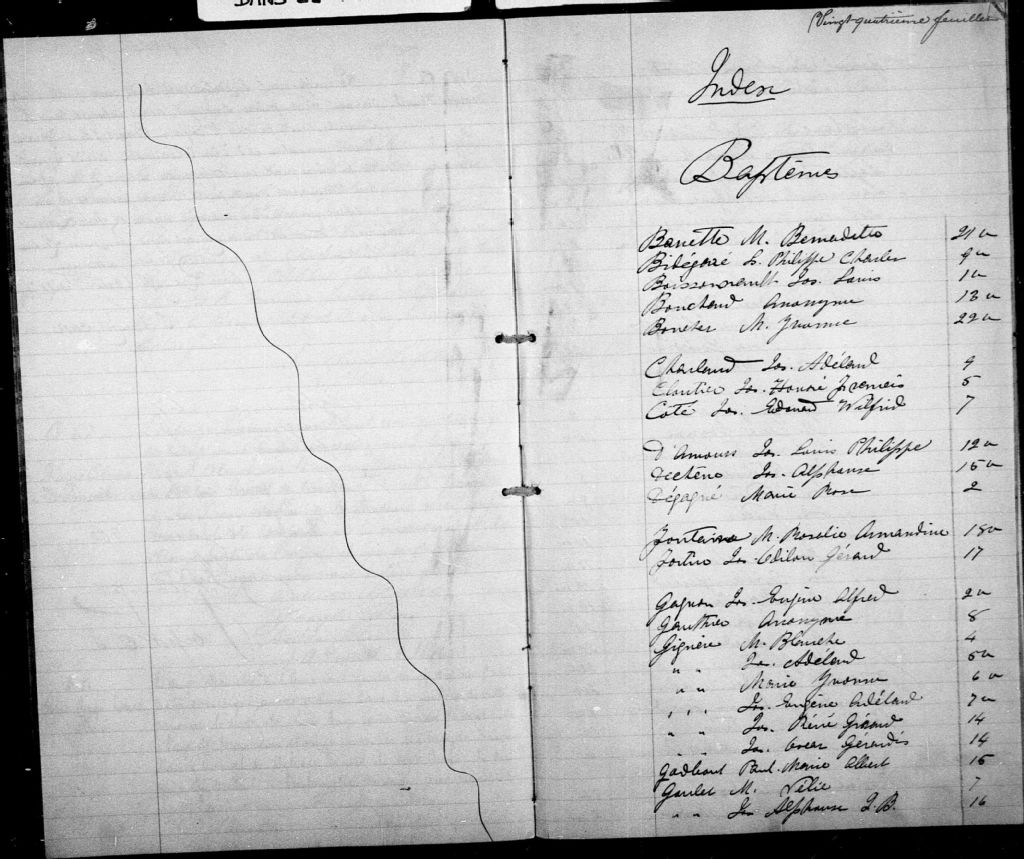 DANS
(Vingt quatrième feuillet)
Index
Baptêmes
Barrette M. Bernadette 21 v
L. Philippe Charles 9 v
Boissonneault Jos. Louis 1 v
Bouchard Anonyme 13 v
Boucher M. Yvonne 22 v
Charland Jos. Adélard 9
Cloutier Jos. Honoré Francois 5
Coté Jos. Edouard Wilfrid 7
D'Amours Jos. Louis Philippe 12 v
Jos. Alphonse 15 v
Dégagné Marie Rose 2
Fontaine M. Rosélie Armandine 18 v
Fortin Jos. Odilon Gérard 17
Gagnon Jos. Eugène Alfred 2 v
Gauthier Anonyme 8
Giguère M. Blanche 4
" " Jos. Adélard 5 v
" " Marie Yvonne 6 v
" " Jos. Eugène Adélard 7 v
" " Jos. Réné Gérard 14
" " Jos. Oscar Gérardis 14
Gadbout Paul Marie Albert 15
Goulet M. 7
" " Jos Alphonse J. B. 16